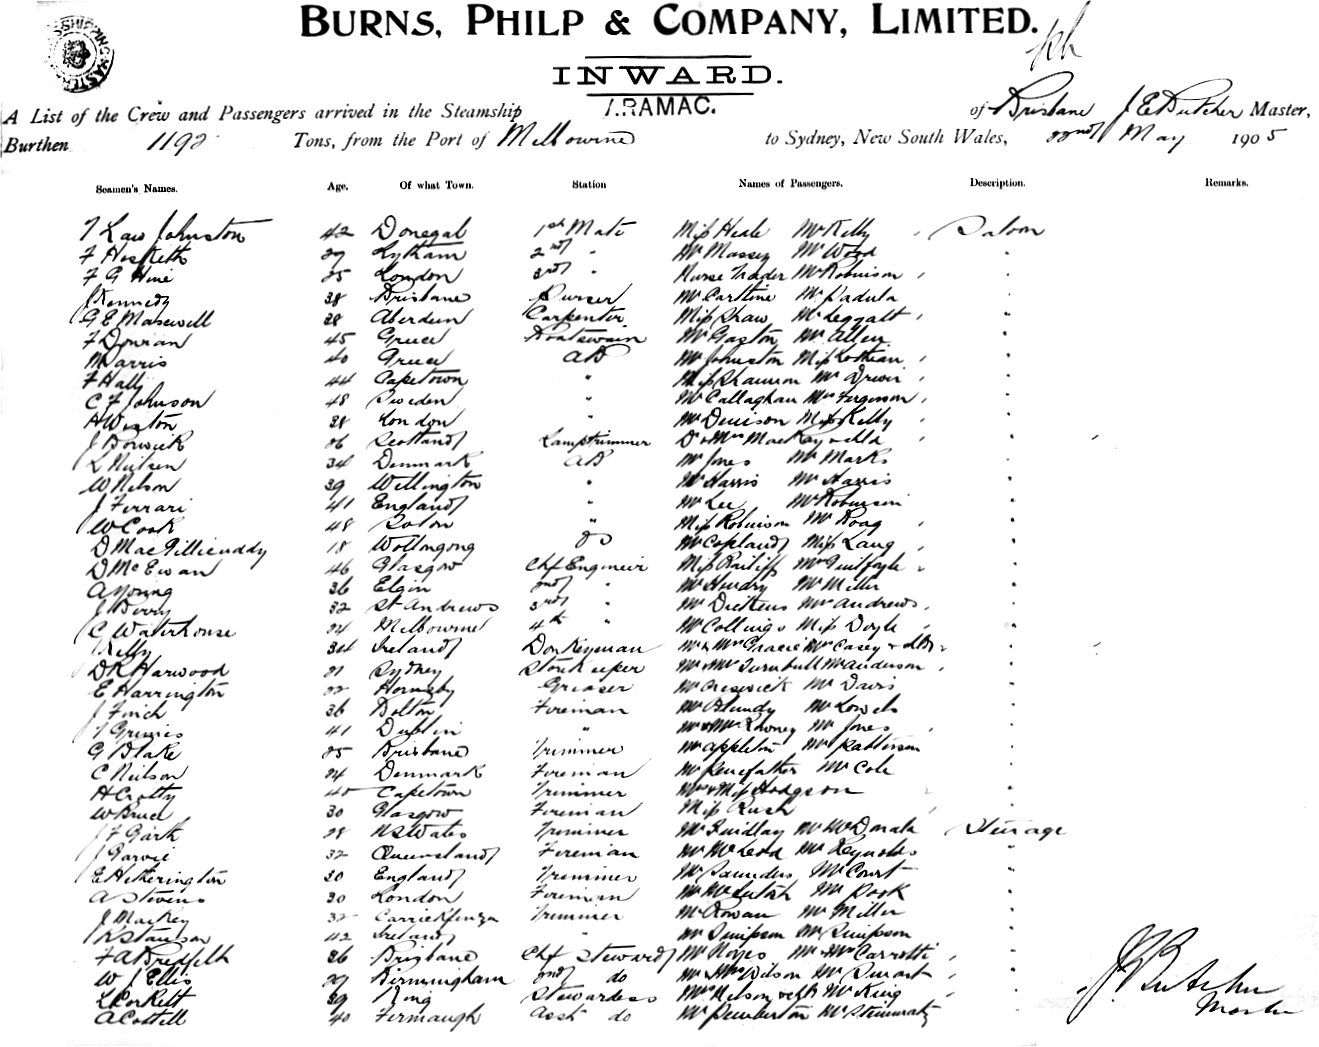 BURNS, PHILP & COMPANY, LIMITED.
INWARD.
A List of the Crew and Passengers arrived in the Steamship ARAMAC. of Brisbane J E Butcher Master,
Burthen 1192 Tons, from the Port of Melbourne to Sydney, New South Wales, 22nd May 1905
Seamen's Names. Age. Of what Town. Station Names of Passengers. Description. Remarks.
T Law Johnston 42 Donegal 1st Mate Miss Heale Mr Kelly Saloon
F Hesketh 29 Lytham 2nd " Mr Massey Mr Wood "
F G Hine 25 London 3rd " Nurse Nader Mr Robinson "
J Kennedy 38 Brisbane Purser Mr Mr Padula "
G E Maxwell 28 Aberdeen Carpenter Miss Shaw Mr Leggatt "
F Dowian 45 Greece Boatswain Mr Gaston Mr Allen "
M Darris 40 Greece AB Mr Johnston Miss Lothian "
F Hall 44 Capetown " Miss Shannon Mr "
C F Johnson 48 Sweden " Mr Callaghan Mr Ferguson "
H Weston 28 London " Mr Denison Miss Kelly "
J Borwick 26 Scotland Lamptrimmer Dr & Mrs MacKay & chld "
L Nielsen 34 Denmark AB Mr Jones Mr Marks "
W Nelson 39 Wellington " Mr Harris Mr Harris "
J Ferrari 41 England " Mr Lee Mr Robinson "
W Cook 48 " Miss Robinson Mr Hoag "
D MacGillicuddy 18 Wollongong OS Mr Copeland Miss Lang "
D McEwan 46 Glasgow Chf Engineer Miss Mr Guilfoyle "
A Young 36 Elgin 2nd " Mr Hendry Mr Miller "
J Berry 32 St Andrews 3rd " Mr Dickens Mr Andrews "
C Waterhouse 24 Melbourne 4th " Mr Collings Miss Doyle "
Kelly 34 Ireland Donkeyman Mr & Mrs Gracie Mrs Casey "
D R Harwood 21 Sydney Storekeeper Mr & Mrs Turnbull Mr Anderson "
E Harrington 22 Hornsby Greaser Mr Creswick Mr Davis "
J Finch 36 Bolton Fireman Mr Blundy Mr Lowels "
T Grimes 41 Dublin " Mr & Mrs Mr Jones "
G Blake 25 Brisbane Trimmer Mr Appleton Mr Patterson "
C Neilson 24 Denmark Fireman Mr Penefather Mr Cole "
H Crotty 40 Capetown Trimmer Mrs & Miss Hodgson "
W Bruce 30 Glasgow Fireman Miss Rush "
J F Garth 28 NS Wales Trimmer Mr Findlay Mr McDonald Steerage
J Garvie 32 Queensland Fireman Mr McLeod Mr Reynolds "
E Hetherington 20 England Trimmer Mr Saunders Mr Court "
A Stevens 30 London Fireman Mr McIntosh Mr Pook "
J Mackey 32 Trimmer Mr Rowan Mr Miller "
K Stauson 42 Ireland " Mr Simpson Mr Simpson "
F A Bredfelt 26 Brisbane Chf Steward Mr Noyes Mr & Mrs Carrotti "
W J Ellis 29 Birmingham 2nd do Mr & Mrs Wilson Mr Smart "
L Corkett 39 Stewardess Mrs Nelson & ch Mr King "
A Cottell 40 Fermaugh Asst do Mr Pemberton Mr "
J E Butcher
Master